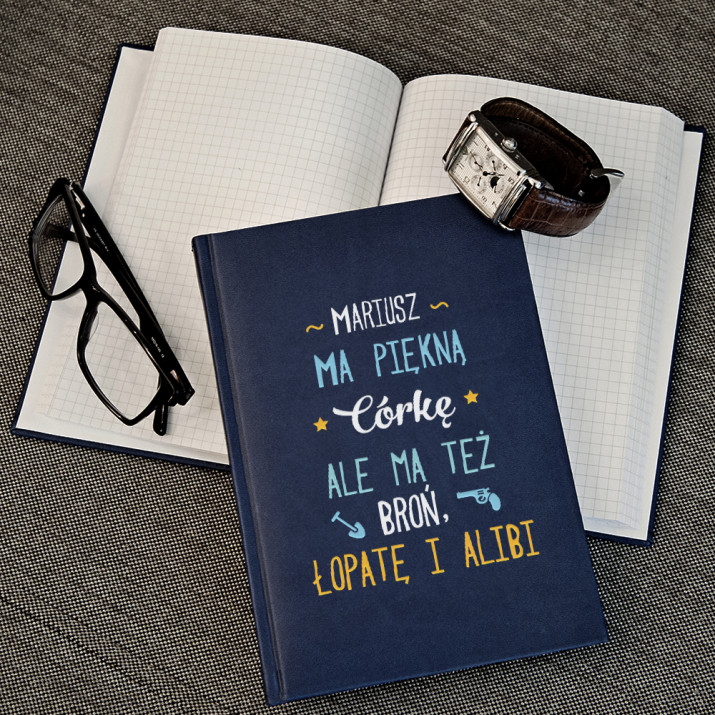 ~ MARIUSZ ~
MA PIĘKNĄ
Córkę
ALE MA TEŻ
BROŃ,
ŁOPATĘ I ALIBI